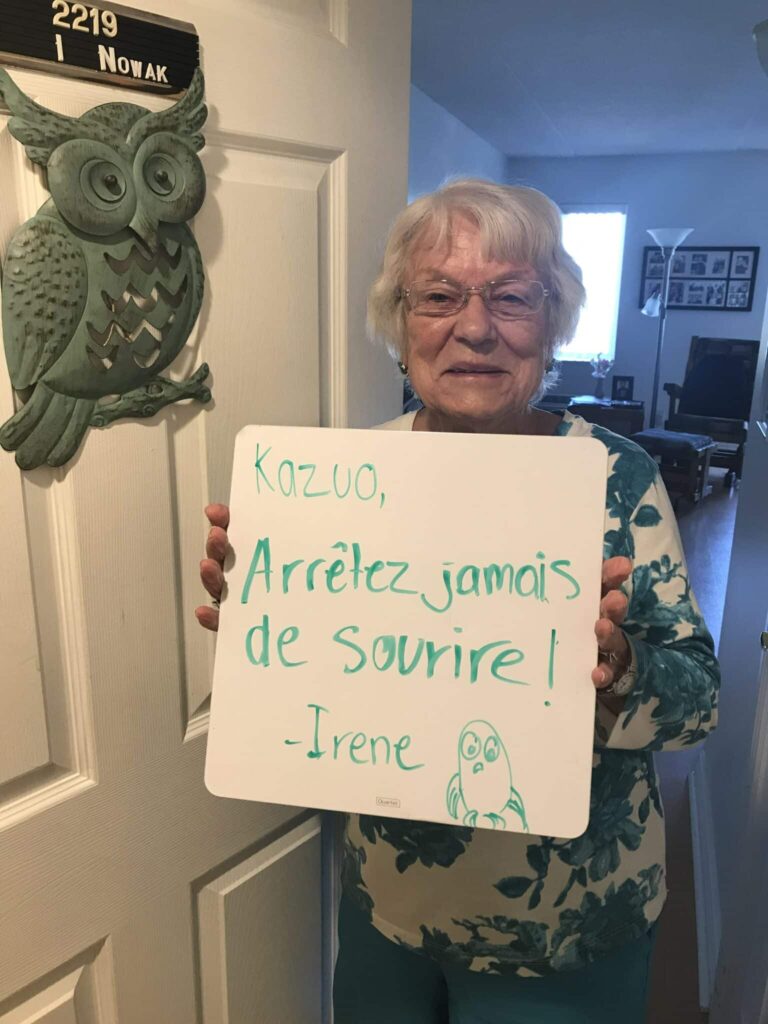 2219
I NOWAK
Kazuo,
Arrêtez jamais
de sourire!
-Irene
Quartet